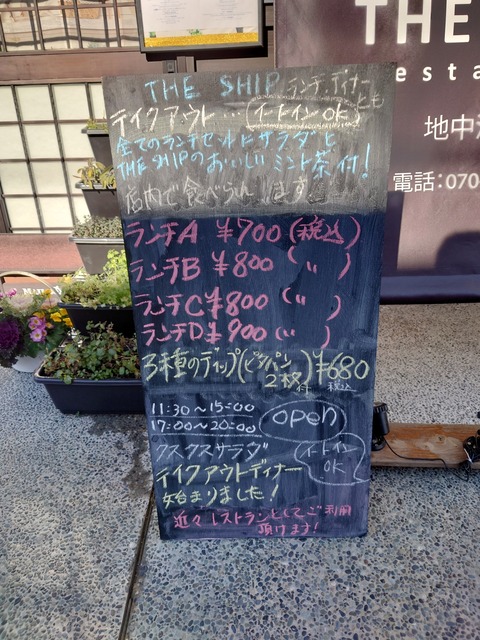 THE
esta
地中
電話:070
THE SHIP ランチ、ディナー
とも
テイクアウト… イートインOK
全てのランチセットにサラダと
THE SHIPのおいしいミント茶付!
店内で食べられます
ランチA ¥700 (税込)
ランチB ¥800 (〃)
ランチC ¥800 (〃)
ランチD ¥900 (〃)
3種のディップ(ピタパン2枚付) ¥680 税込
11:30〜15:00
17:00〜20:00
open
クスクスサラダ
イートインOK
テイクアウトディナー
始まりました!
近々レストランとしてご利用
頂けます!